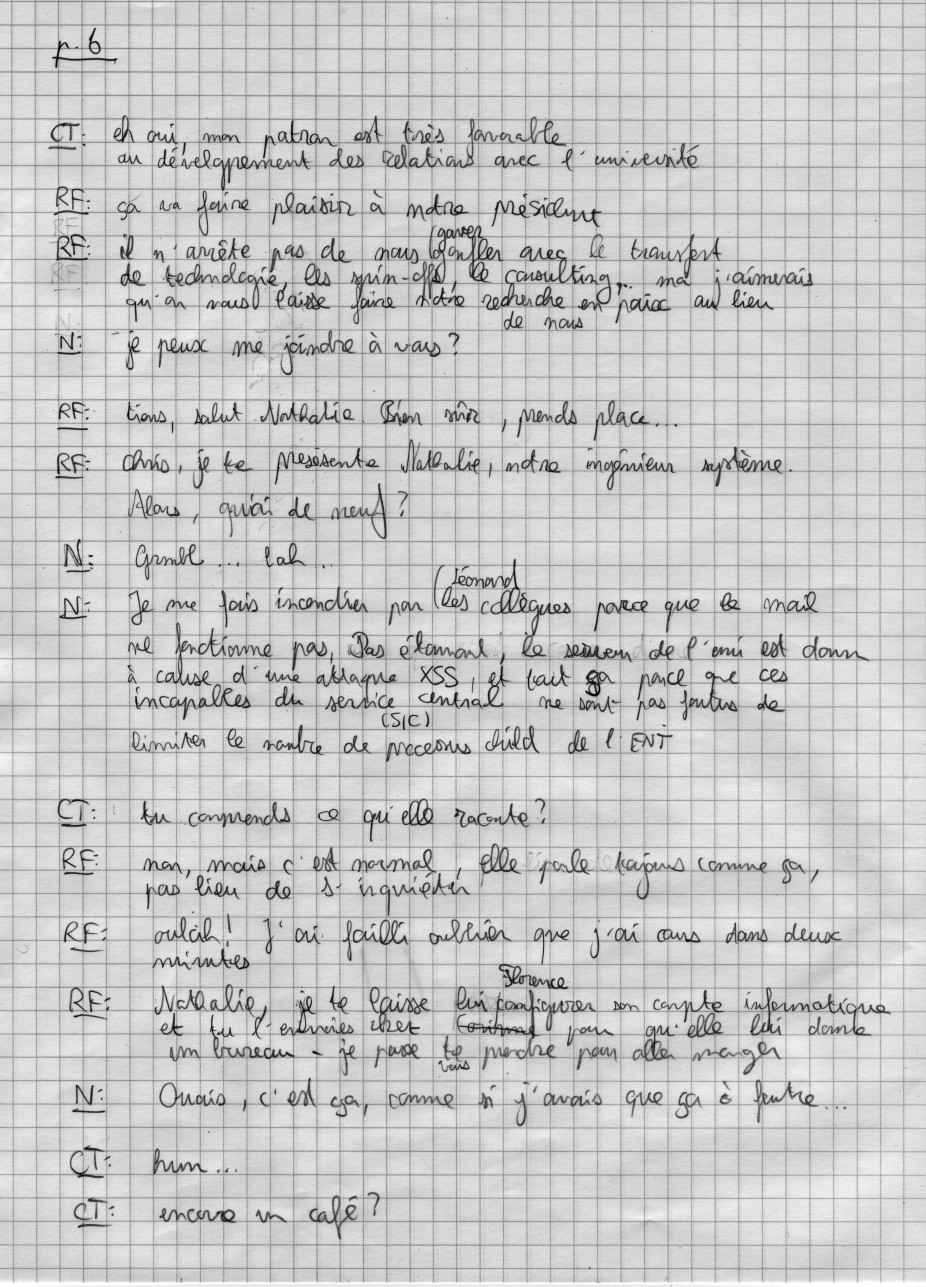 p. 6
CT: eh oui, mon patron est très favorable
au développement des relations avec l'université
RF: ça va faire plaisir à notre président
(gaver
RF: il n'arrête pas de nous gonfler avec le transfert
de technologie, les spin-offs, le consulting... moi j'aimerais
qu'on nous laisse faire notre recherche en paix au lieu
de nous
N: je peux me joindre à vous?
RF: tiens, salut Nathalie. Bien sûr, prends place...
RF: Chris, je te présente Nathalie, notre ingénieur système.
Alors, quoi de neuf?
N: Grmbl... lah...
(Léonard
N: Je me fais incendier par les collègues parce que le mail
ne fonctionne pas. Pas étonnant, le serveur de l'uni est down
à cause d'une attaque XSS, et tout ça parce que ces
incapables du service central ne sont pas foutus de
(SIC)
limiter le nombre de processus child de l'ENT
CT: tu comprends ce qu'elle raconte?
RF: non, mais c'est normal, elle parle toujours comme ça,
pas lieu de s'inquiéter
RF: oulah! J'ai failli oublier que j'ai cours dans deux
minutes
Florence
RF: Nathalie, je te laisse lui configurer son compte informatique
et tu l'envoies chez pour qu'elle lui donne
un bureau - je passe te prendre pour aller manger
vous
N: Ouais, c'est ça, comme si j'avais que ça à foutre...
CT: hum...
CT: encore un café?